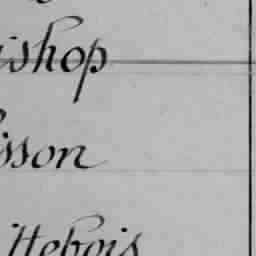 ishop
isson
ittebois